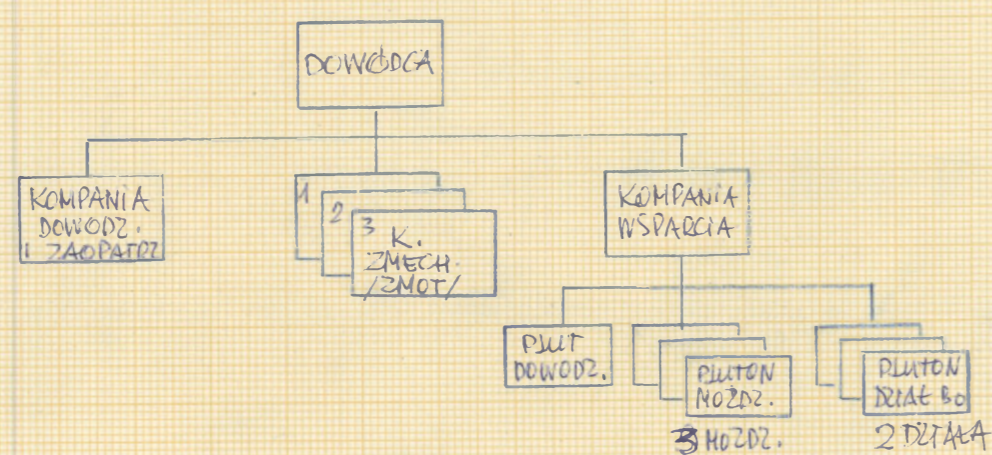 DOWÓDCA
KOMPANIA
DOWODZ.
I ZAOPATRZ
1
2
3
K.
ZMECH.
/ZMOT/
KOMPANIA
WSPARCIA
PLUT
DOWODZ.
PLUTON
MOŹDZ.
3 MOŹDZ.
PLUTON
DZIAŁ BO
2 DZIAŁA